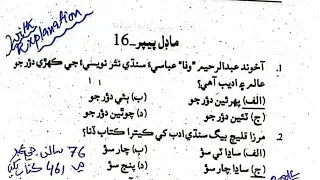 With
Explanation
ماڊل پيپر_16
1. آخوند عبدالرحيم "وفا" عباسيءَ سنڌي نثر نويسيءَ جي ڪهڙي دؤر جو
عالم ۽ اديب آهي؟
(الف) پهرئين دؤر جو (ب) ٻئي دؤر جو
(ج) ٽئين دؤر جو (د) چوٿين دؤر جو
2. مرزا قليچ بيگ سنڌي ادب کي ڪيترا ڪتاب ڏنا؟
(الف) ساڍا ٽي سؤ (ب) چار سؤ
(ج) ساڍا چار سؤ (د) پنج سؤ
76 سالن جي عمر
461 ڪتاب